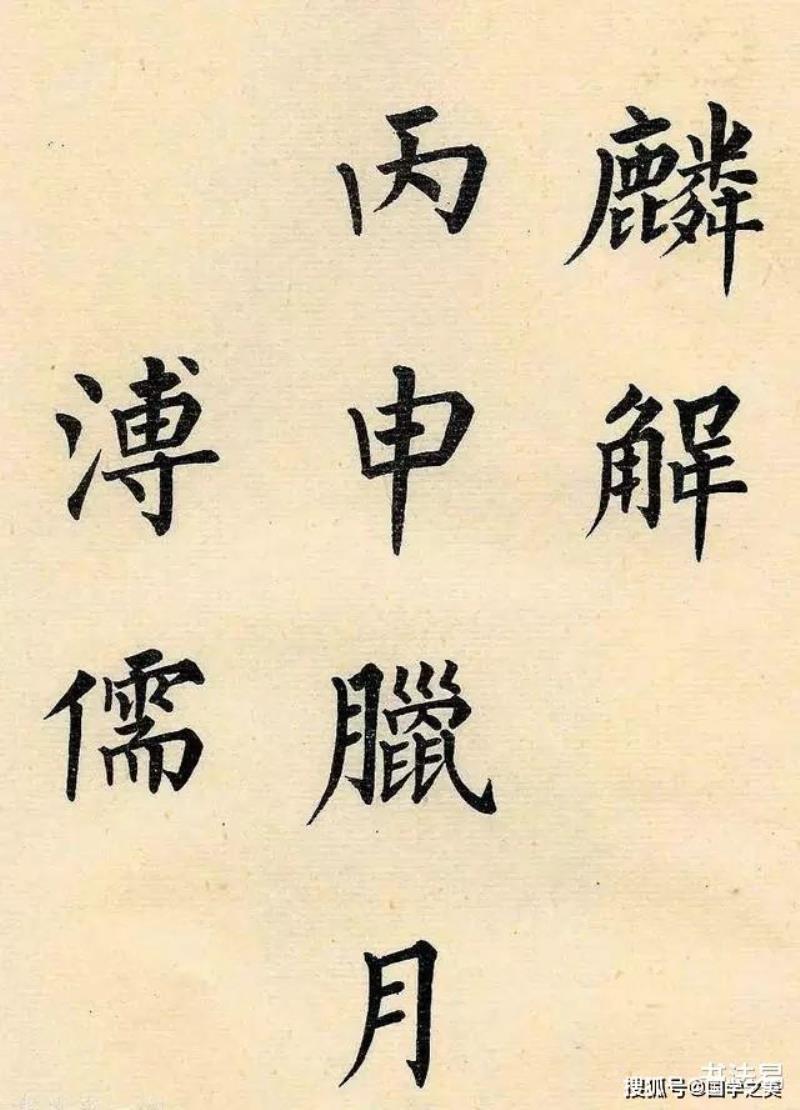 麟解
丙申臘月
溥儒
书法易
搜狐号@国学之美